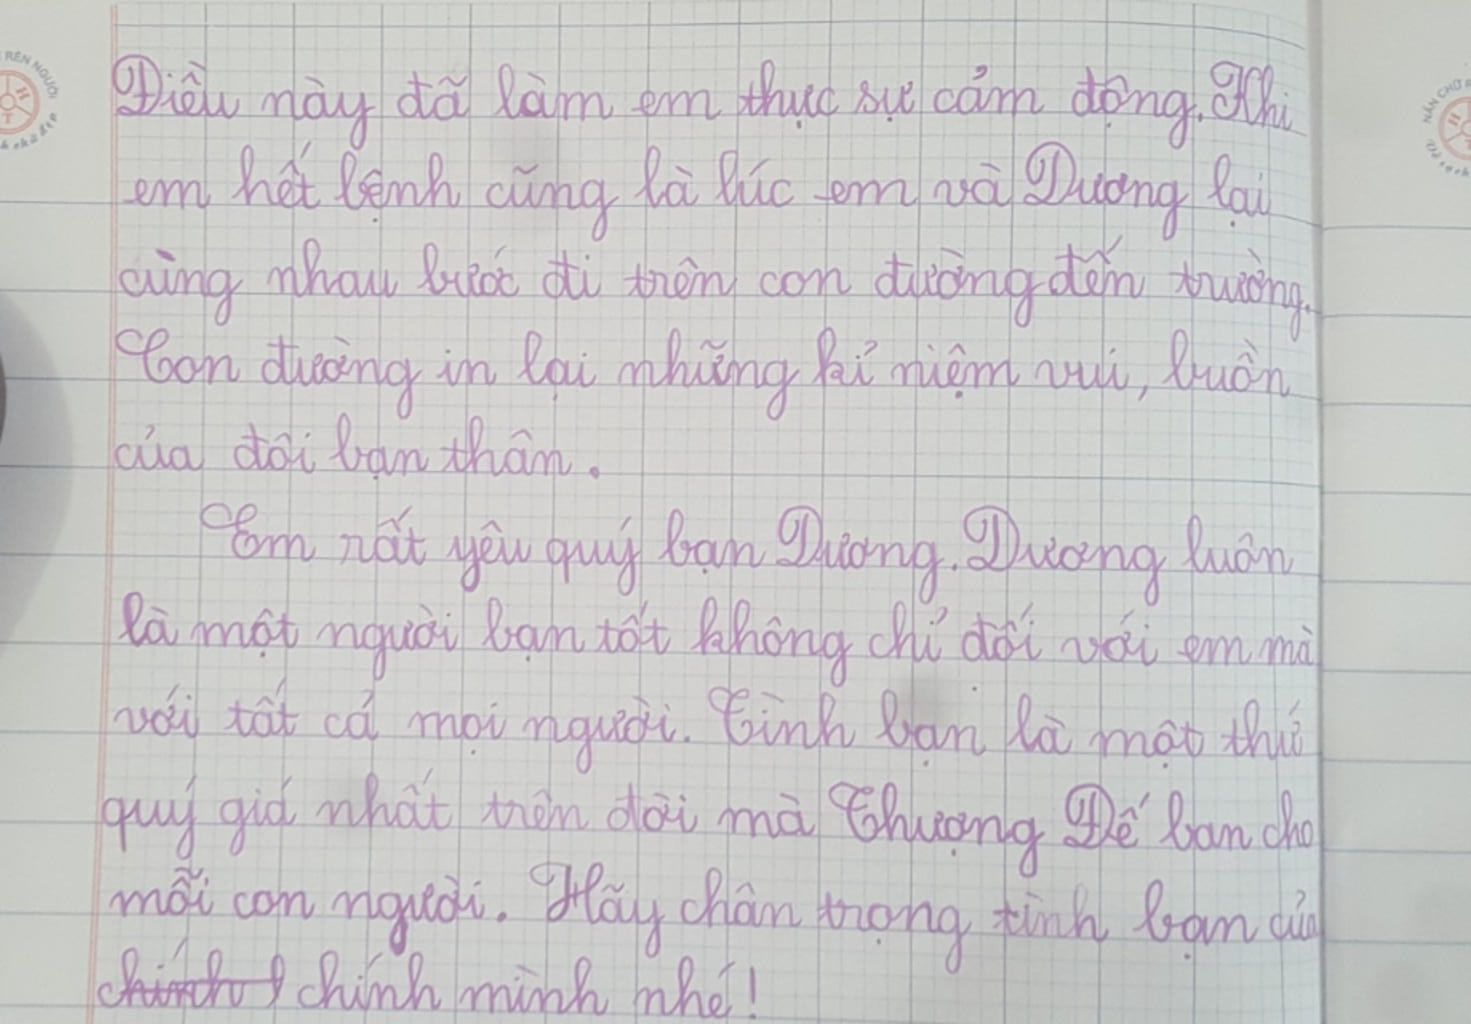 Điều này đã làm em thực sự cảm động. Khi
em hết bệnh cũng là lúc em và Dương lại
cùng nhau bước đi trên con đường đến trường.
Con đường in lại những kỉ niệm vui, buồn
của đôi bạn thân.
Em rất yêu quý bạn Dương. Dương luôn
là một người bạn tốt không chỉ đối với em mà
với tất cả mọi người. Tình bạn là một thứ
quý giá nhất trên đời mà Thượng Đế ban cho
mỗi con người. Hãy chân trọng tình bạn của
chính mình nhé!